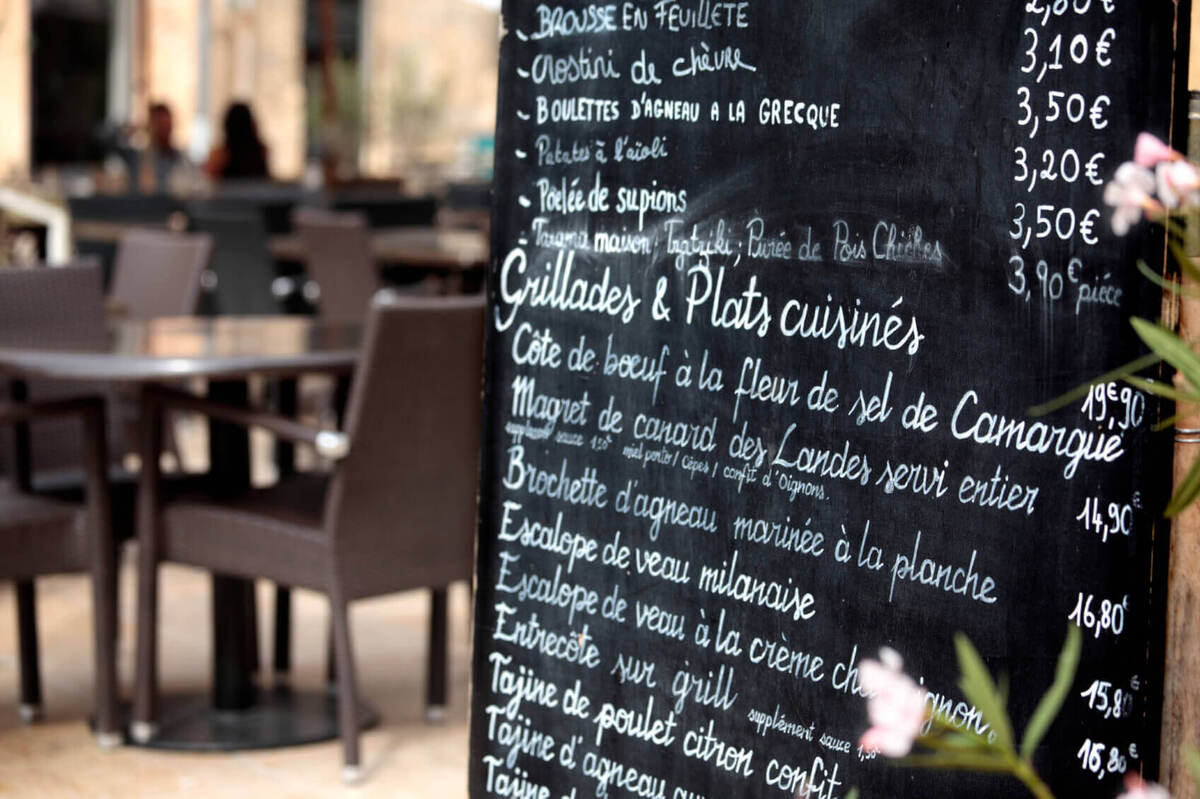 - BROUSSE EN FEUILLETÉ
3,10€
- Crostini de chèvre
3,50€
- BOULETTES D'AGNEAU A LA GRECQUE
3,20€
- Patates à l'aïoli
3,50€
- Poêlée de supions
3,90€ pièce
- Tarama maison, Tzatziki ; Purée de Pois Chiches
Grillades & Plats cuisinés
Côte de boeuf à la fleur de sel de Camargue 19€90
Magret de canard des Landes servi entier 14,90€
supplément sauce 1,50€ miel porto / Cèpes / confit d'Oignons.
Brochette d'agneau marinée à la planche 16,80€
Escalope de veau milanaise 15,8
Escalope de veau à la crème 16,80€
Entrecôte sur grill supplément sauce
Tajine de poulet citron confit
Tajine d'agneau
Tajine